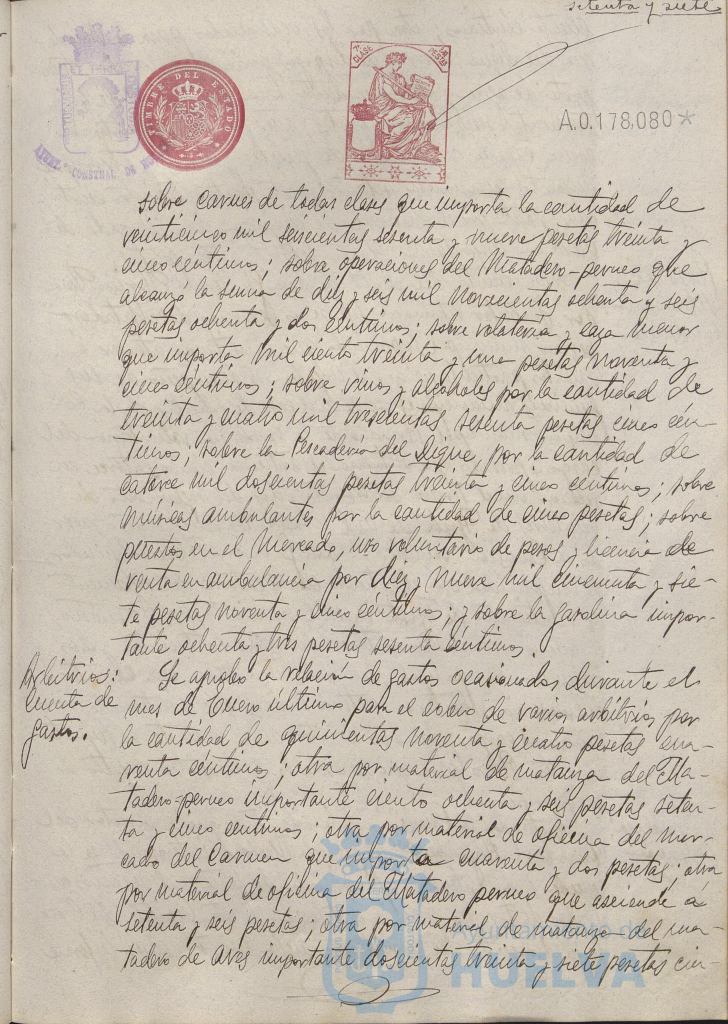 setenta y siete
TIMBRE DEL ESTADO
7ª CLASE
UNA PESETA
A.0.178,080*
AYUNTº CONSTNAL DE HU
sobre carnes de todas clases que importa la cantidad de
veinticinco mil seiscientas sesenta y nueve pesetas treinta y
cinco céntimos; sobre operaciones del Matadero-porcuno que
alcanzó la suma de diez y seis mil novecientas ochenta y seis
pesetas ochenta y dos céntimos; sobre volatería y caza menor
que importa mil ciento treinta y una pesetas noventa y
cinco céntimos; sobre vinos y alcoholes por la cantidad de
treinta y cuatro mil trescientas sesenta pesetas cinco cén-
timos; sobre la Pescadería del Dique, por la cantidad de
catorce mil doscientas pesetas treinta y cinco céntimos; sobre
músicas ambulantes por la cantidad de cinco pesetas; sobre
puestos en el Mercado, uso voluntario de pesos y licencia de
venta en ambulancia por diez y nueve mil cincuenta y sie-
te pesetas noventa y cinco céntimos; y sobre la gasolina impor-
tante ochenta y tres pesetas sesenta céntimos.
Arbitrios:
Cuenta de
gastos.
Se aprueba la relación de gastos ocasionados durante el
mes de Enero último para el cobro de varios arbitrios por
la cantidad de quinientas noventa y cuatro pesetas cua-
renta céntimos; otra por material de matanza del Ma-
tadero-porcuno importante ciento ochenta y seis pesetas seten-
ta y cinco céntimos; otra por material de oficina del Mer-
cado del Carmen que importa cuarenta y dos pesetas; otra
por material de oficina del Matadero porcuno que asciende á
setenta y seis pesetas; otra por material de matanza del ma-
tadero de Aves importante doscientas treinta y siete pesetas cin-
Ayuntamiento de
HUELVA